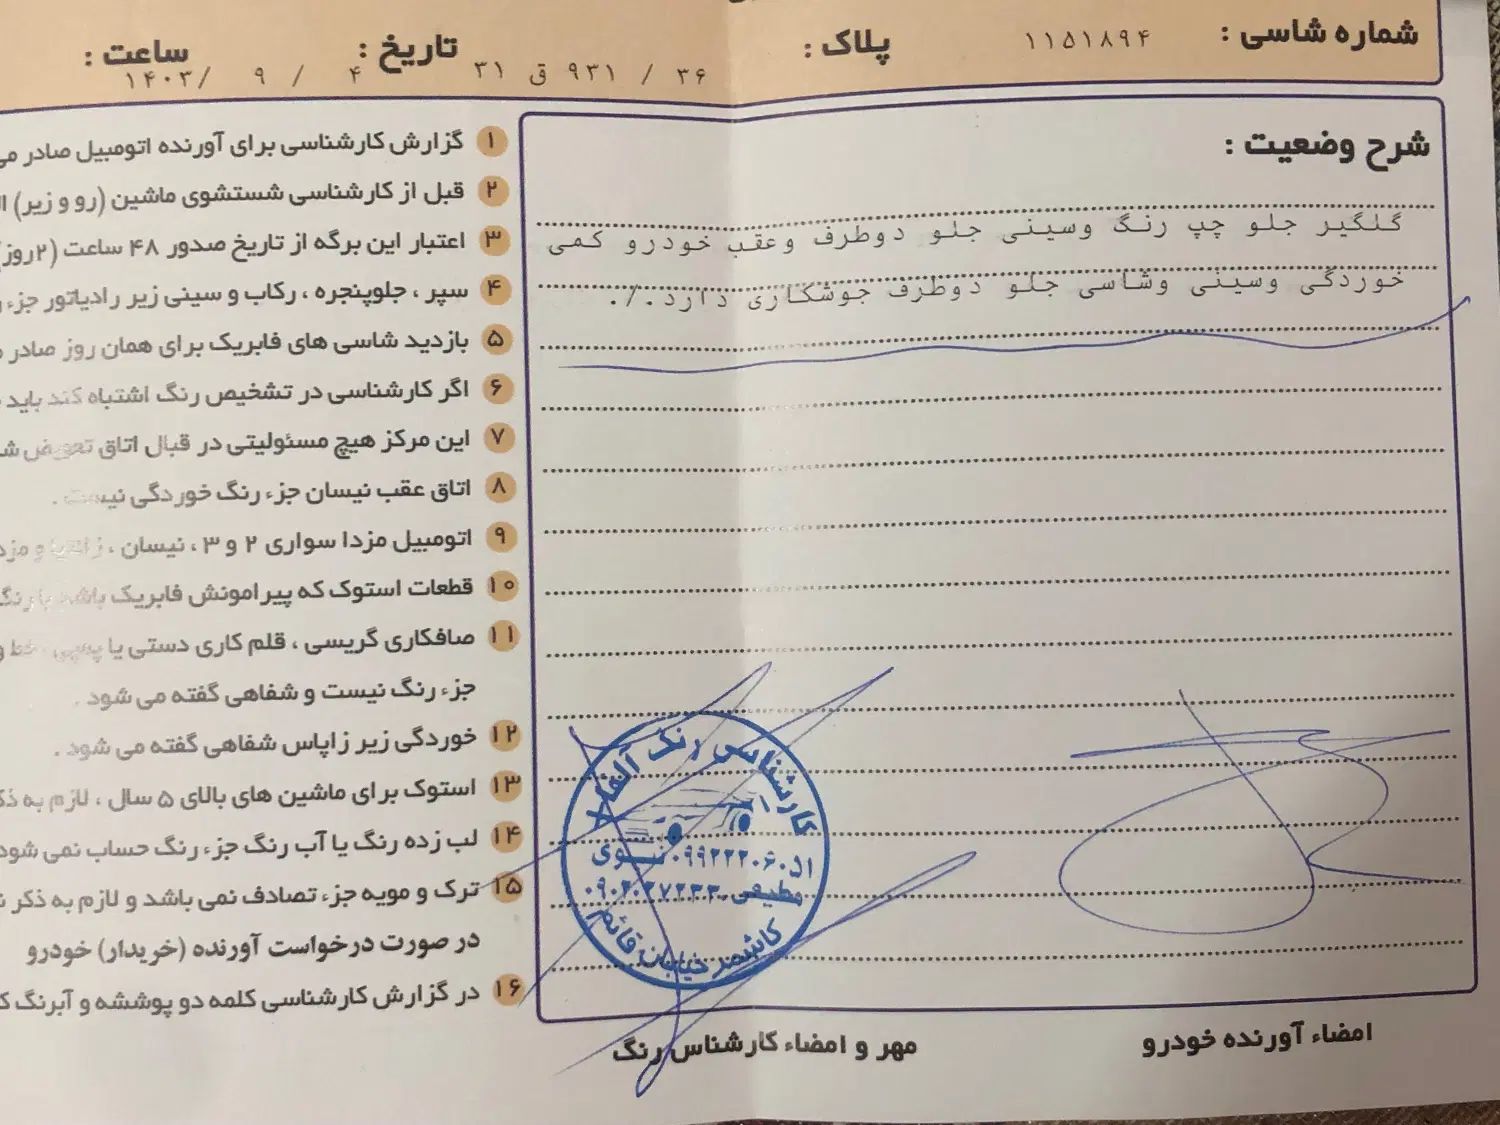 شماره شاسی :
۱۱۵۱۸۹۴
پلاک :
۳۶ / ۹۳۱ ق ۳۱
تاریخ :
۱۴۰۳/ ۹ / ۴
ساعت :
شرح وضعیت :
گلگیر جلو چپ رنگ وسینی جلو دوطرف وعقب خودرو کمی
خوردگی وسینی وشاسی جلو دوطرف جوشکاری دارد./.
کارشناسی رنگ
نبوی ۰۹۹۲۲۲۰۶۰۵۱
۰۹۰۲۰۲۷۲۳۳
کاشمر خیابان قائم
امضاء آورنده خودرو
مهر و امضاء کارشناس رنگ
۱ گزارش کارشناسی برای آورنده اتومبیل صادر می
۲ قبل از کارشناسی شستشوی ماشین (رو و زیر)
۳ اعتبار این برگه از تاریخ صدور ۴۸ ساعت (۲روز)
۴ سپر ، جلوپنجره ، رکاب و سینی زیر رادیاتور جزء
۵ بازدید شاسی های فابریک برای همان روز صادر
۶ اگر کارشناسی در تشخیص رنگ اشتباه کند باید
۷ این مرکز هیچ مسئولیتی در قبال اتاق تعویض
۸ اتاق عقب نیسان جزء رنگ خوردگی نیست .
۹ اتومبیل مزدا سواری ۲ و ۳ ، نیسان ، زانتیا و
۱۰ قطعات استوک که پیرامونش فابریک باشد با رنگ
۱۱ صافکاری گریسی ، قلم کاری دستی یا پمپی ، خط و
جزء رنگ نیست و شفاهی گفته می شود .
۱۲ خوردگی زیر زاپاس شفاهی گفته می شود .
۱۳ استوک برای ماشین های بالای ۵ سال ، لازم به
۱۴ لب زده رنگ یا آب رنگ جزء رنگ حساب نمی شود
۱۵ ترک و مویه جزء تصادف نمی باشد و لازم به ذکر
در صورت درخواست آورنده (خریدار) خودرو
۱۶ در گزارش کارشناسی کلمه دو پوششه و آبرنگ